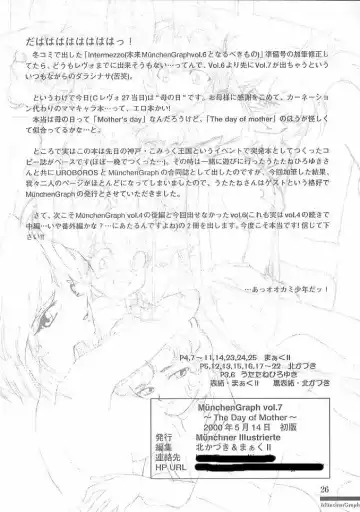 だははははははははっ！
冬コミで出した「Intermezzo(本来MünchenGraphvol.6となるべきもの)」準備号の加筆修正し
てたら、どうもレヴォまでに出来そうもない…ってんで、Vol.6より先にVol.7が出ちゃうという
いつもながらのダランナサ(苦笑)。
というわけで今日(Cレヴォ27当日)は“母の日”です。お母様に感謝をこめて、カーネーシ
ョン代わりのママキャラ本…って、エロ本かい！
本当は母の日って「Mother's day」なんだろうけど、「The day of mother」のほうが怪しく
て似合ってるかな～と。
ところで実はこの本は先日の神戸・こみっく王国というイベントで突発本としてつくったコ
ピー誌がベースです(ほぼ一晩でつくった)。その時は一緒に遊びに行ったうたたねひろゆきさ
んと共にUROBOROSとMünchenGraphの合同誌として出したのですが、今回加筆した結果、
我々二人のページがほとんどになってしまいましたので、うたたねさんはゲストという格好で
MünchenGraphの発行とさせていただきました。
さて、次こそMünchenGraph vol.4の後編と今回出せなかったvol.6(これも実はvol.4の続きで
中編…いや番外編かな？…にあたるんですよね)の2冊を出します。今度こそ本当です！信じて下
さい!!
…あっオオカミ少年だッ！
P4,7～11,14,23,24,25　まぁくII
P5,12,13,15,16,17～22　北かづき
P3,6　うたたねひろゆき
表紙・まぁくII　裏表紙・北かづき
MünchenGraph vol.7
～The Day of Mother～
2000年5月14日　初版
発行　Münchner Illustrierte
編集　北かづき＆まぁくII
連絡先
HP URL
26
MünchenGraph